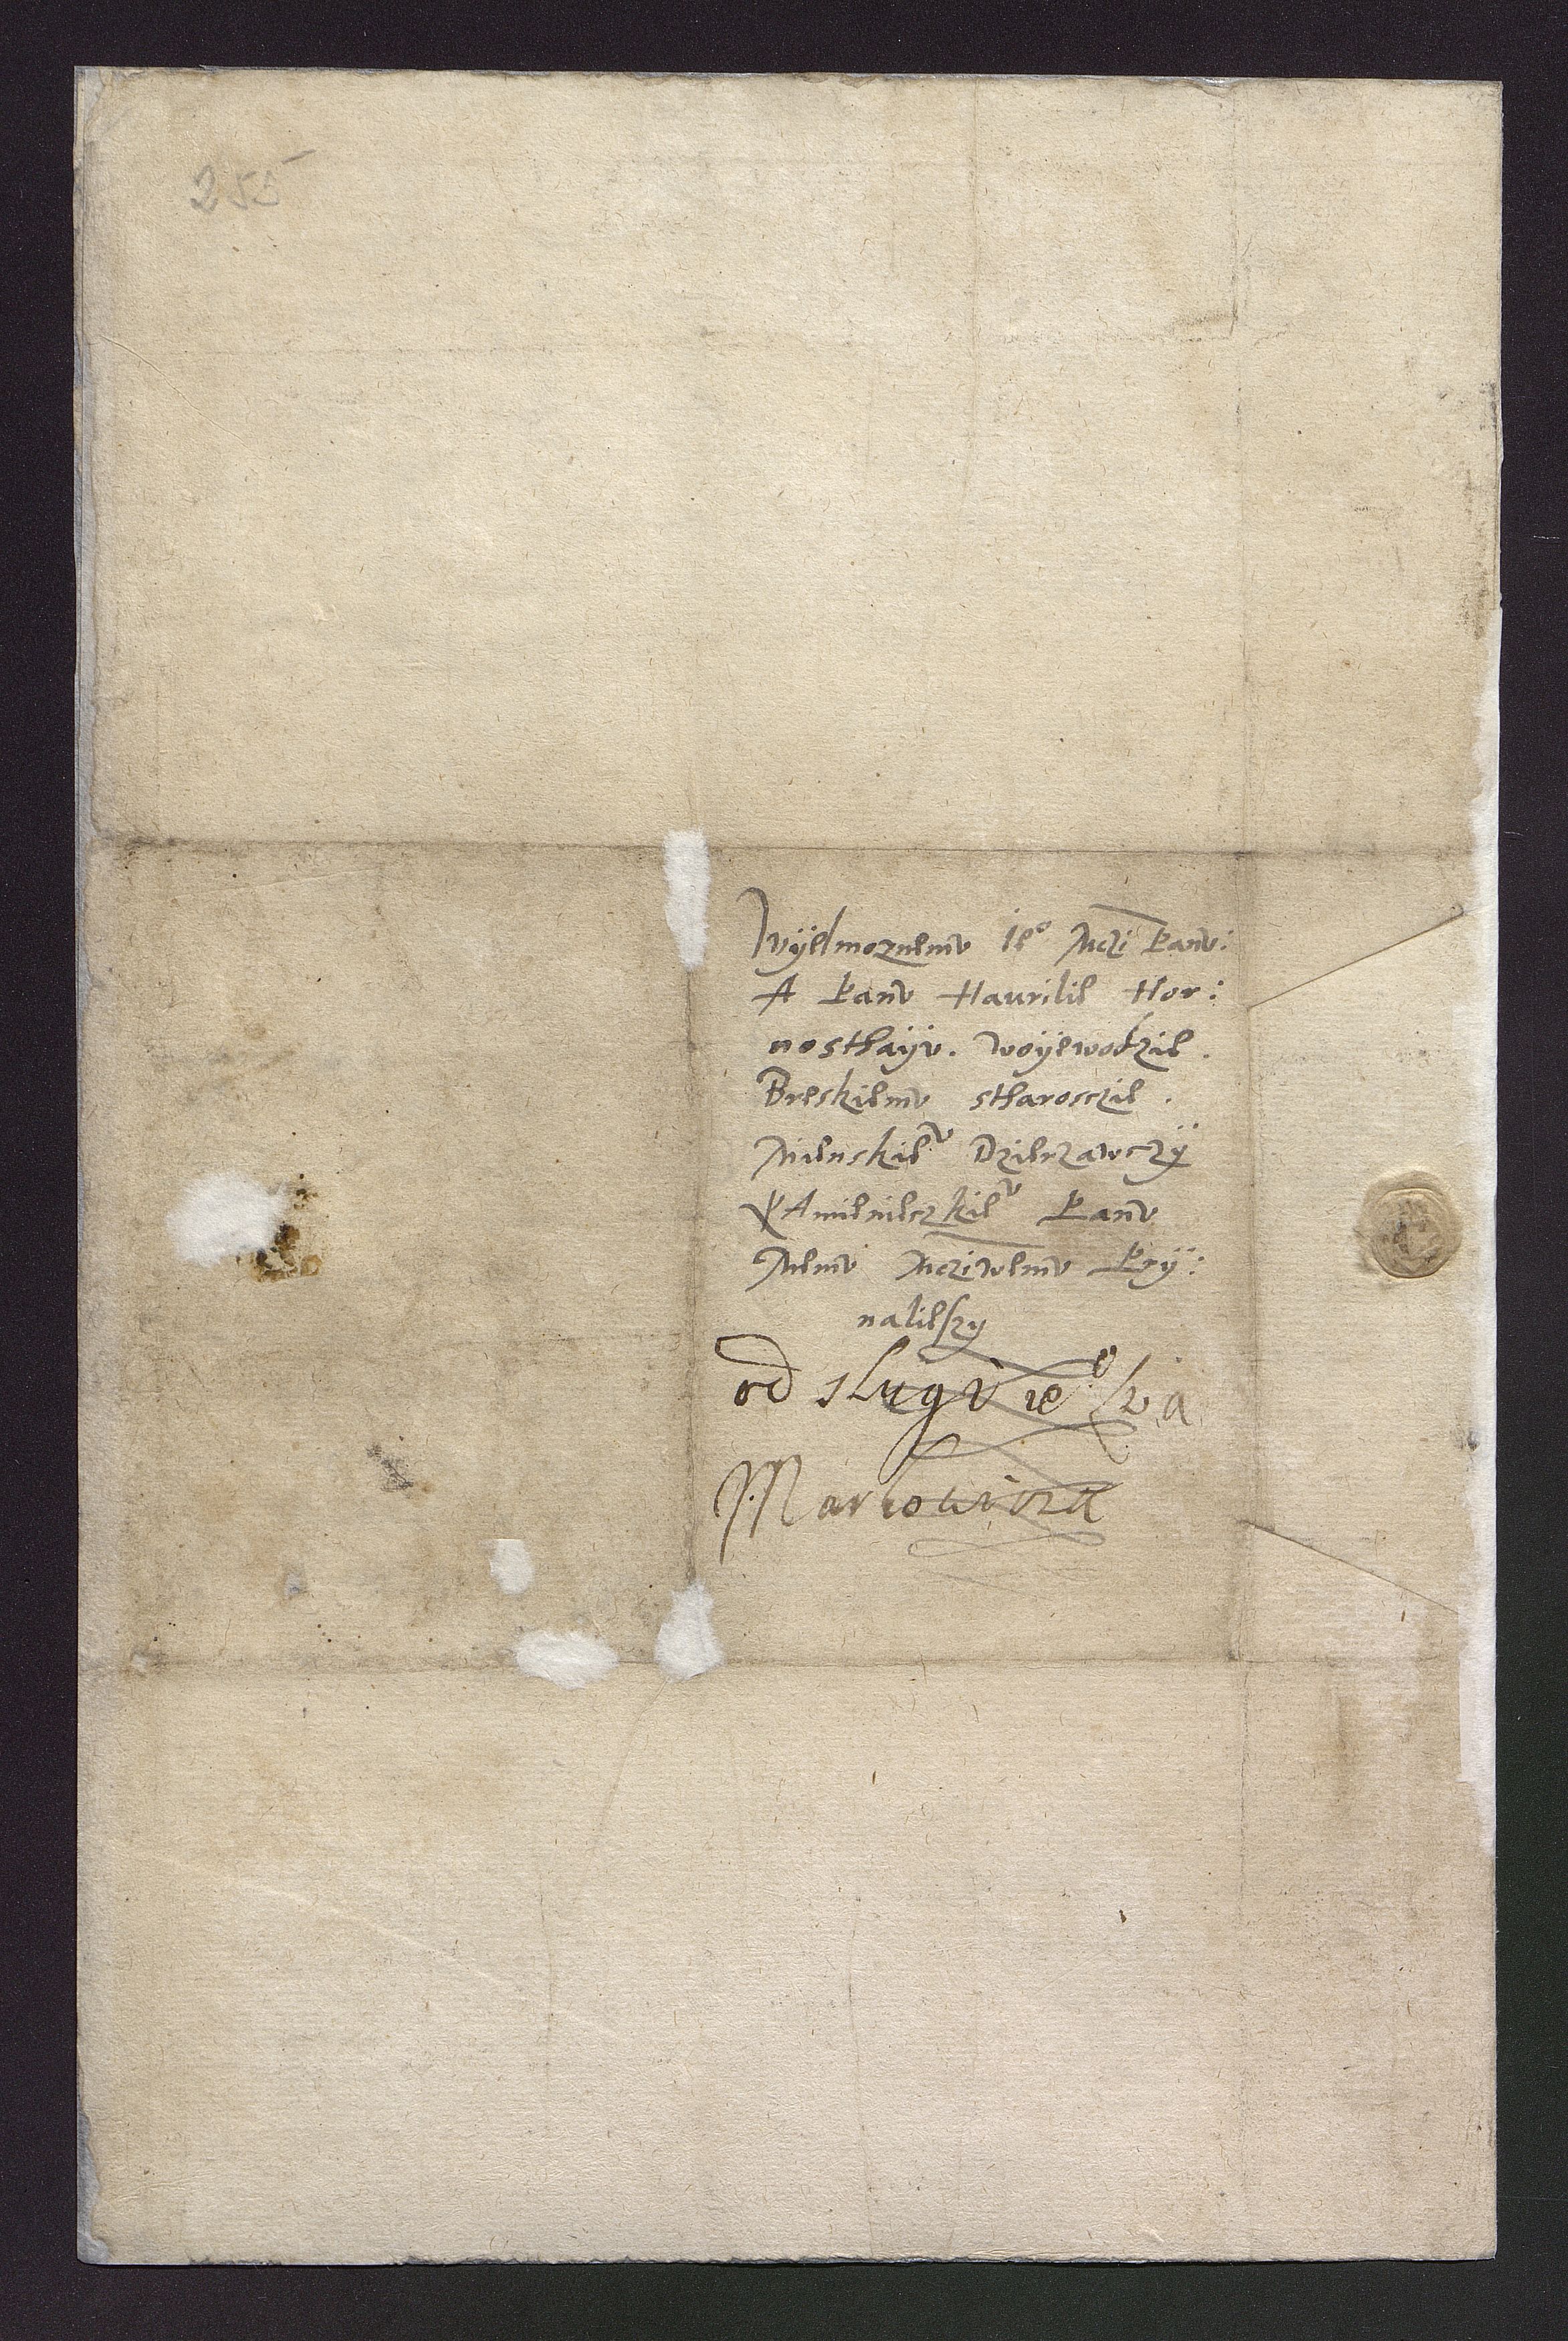 255
Wyelmoznemv ie° Mczi panv:
A panv Hawrilie Hor:
nosthayv. woyewodzie.
Breskiemv stharosczie.
Mienskie^v Dzierzawczy
KAmienieczkie^v panv
Memv Mcziwemv przy:
nalieszy
od slugi ie°
Markowicza